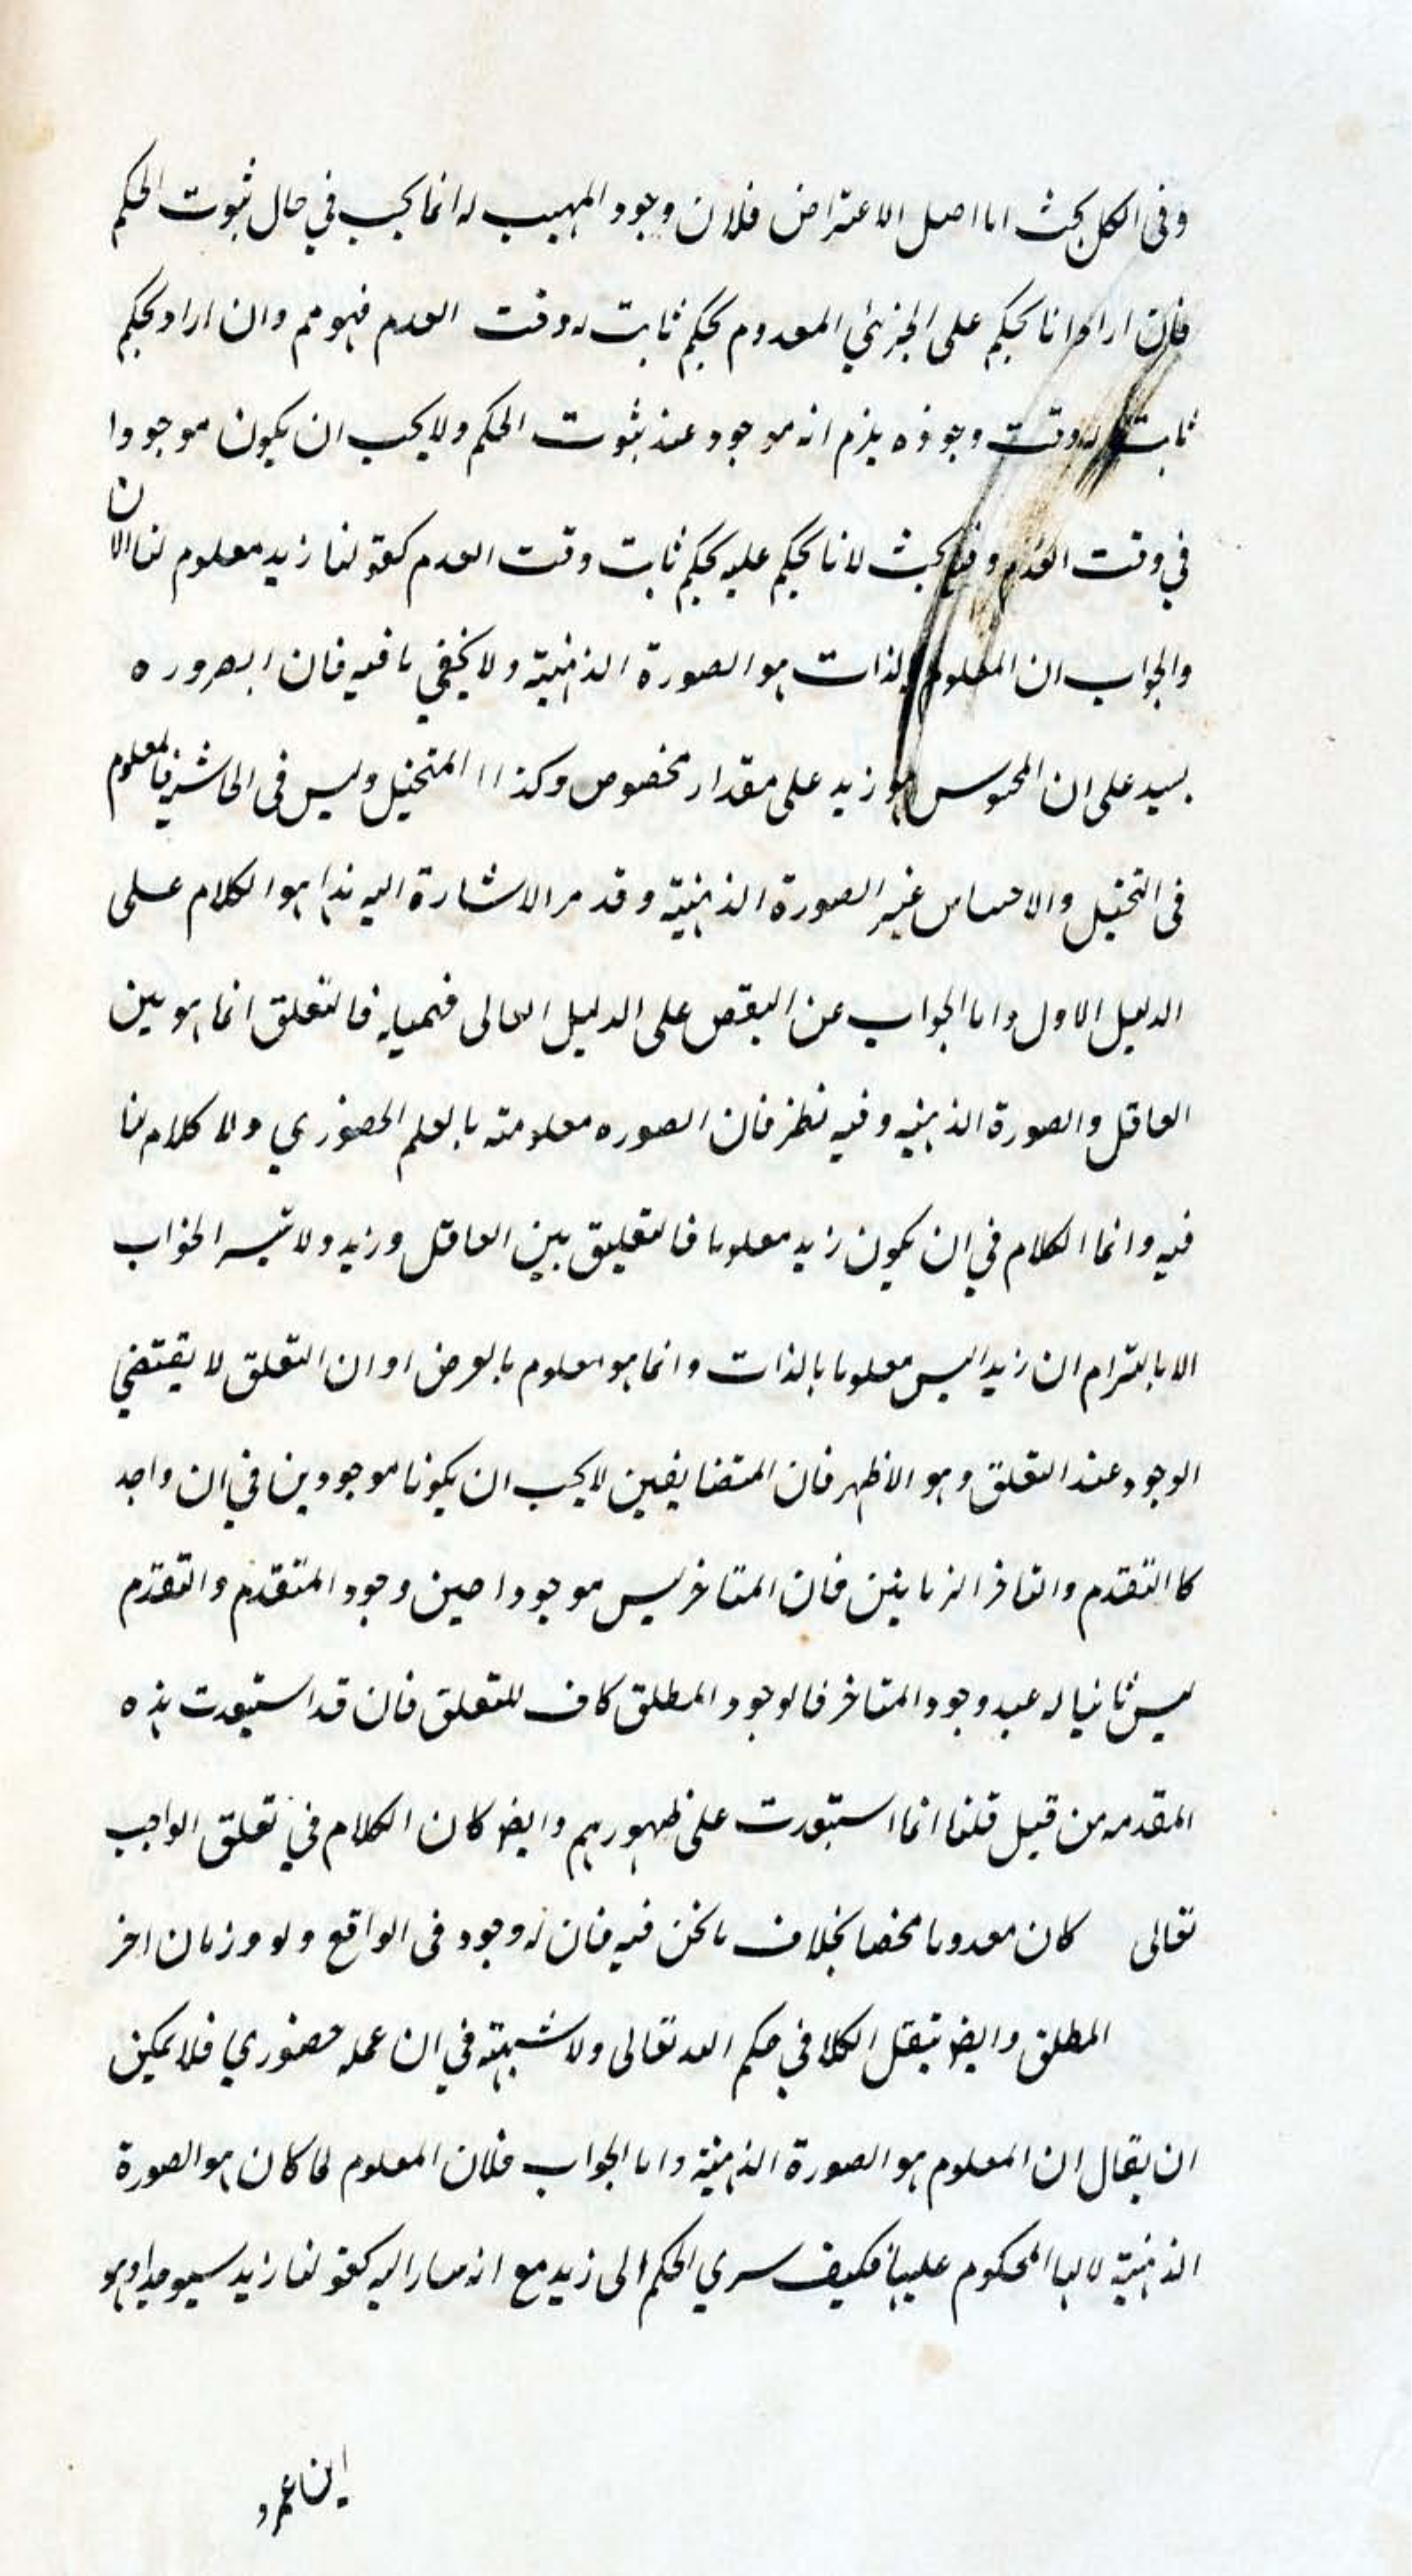 وفى الكل بحث اما اصل الاعتراض فلان وجود المهيب له انما يجب في حال ثبوت الحكم
فان ارادوا انا نحكم على الجزئي المعدوم بحكم ثابت له وقت العدم فهو مم وان اراد بحكم
ثابت له وقت وجوده يلزم انه موجود عند ثبوت الحكم ولا يجب ان يكون موجودا
في وقت العدم وفيه بحث لانا نحكم عليه بحكم ثابت وقت العدم كقولنا زيد معلوم لنا الان
والجواب ان المعلوم بالذات هو الصورة الذهنية ولا يخفى ما فيه فان الضرورة
على ان المحسوس هو زيد على مقدار مخصوص وكذا المتخيل وليس فى الخارج معلوم
فى التخيل والاحساس غير الصورة الذهنية وقد مر الاشارة اليه هذا هو الكلام على
الدليل الاول واما الجواب عن النقض على الدليل التالى فالتعلق انما هو بين
العاقل والصورة الذهنيه وفيه نظر فان الصوره معلومته بالعلم الحضوري ولا كلام لنا
فيه وانما الكلام في ان يكون زيد معلوما فالتعليق بين العاقل وزيد ولا الجواب
الا بالتزام ان زيدا ليس معلوما بالذات وانما هو معلوم بالعرض او ان التعلق لا يقتضي
الوجود عند التعلق وهو الاظهر فان المتضايفين لا يجب ان يكونا موجودين في ان واحد
كا التقدم والتاخر الزمانين فان المتاخر ليس موجودا حين وجود المتقدم والتقدم
ليس ثانيا له عند وجود المتاخر فالوجود المطلق كاف للتعلق فان قد استبعدت هذه
المقدمه من قبل قلنا انما استبعدت على ظهورهم وايضا كان الكلام في تعلق الواجب
تعالى كان معدوما محضا بخلاف ما نحن فيه فان له وجود فى الواقع ولو فى زمان اخر
المطلق وايضا ينتقل الكلا في حكم الله تعالى ولا شبهته في ان علمه حضوري فلا يمكن
ان يقال ان المعلوم هو الصورة الذهنية واما الجواب فلان المعلوم لما كان هو الصورة
الذهنية المحكوم عليها فكيف سري الحكم الى زيد مع انه كقولنا زيد وهو
ابن عمرو